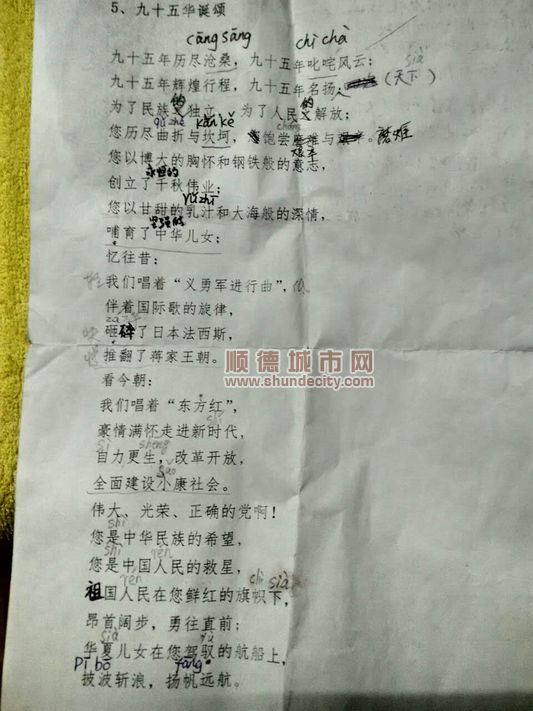 5、九十五华诞颂
cāng sāng chì chà
九十五年历尽沧桑，九十五年叱咤风云；
sià
九十五年辉煌行程，九十五年名扬（天下）
的 的
为了民族独立，为了人民解放；
qū zhé kǎn kě
您历尽曲折与坎坷，饱尝与。磨难
您以博大的胸怀和钢铁般的意志，
永恒的
创立了千秋伟业；
rǔ zhī
您以甘甜的乳汁和大海般的深情，
坚强的
哺育了中华儿女；
忆往昔：
我们唱着“义勇军进行曲”，
伴着国际歌的旋律，
za
砸碎了日本法西斯，
推翻了蒋家王朝。
看今朝：
我们唱着“东方红”，
豪情满怀走进新时代，
sheng
自力更生，改革开放，
全面建设小康社会。
伟大、光荣、正确的党啊！
shi
您是中华民族的希望，
shi ren
您是中国人民的救星，
ren chi sià
祖国人民在您鲜红的旗帜下，
昂首阔步，勇往直前；
sià yu
华夏儿女在您驾驭的航船上，
pī bō fāng
披波斩浪，扬帆远航。
顺德城市网
www.shundecity.com